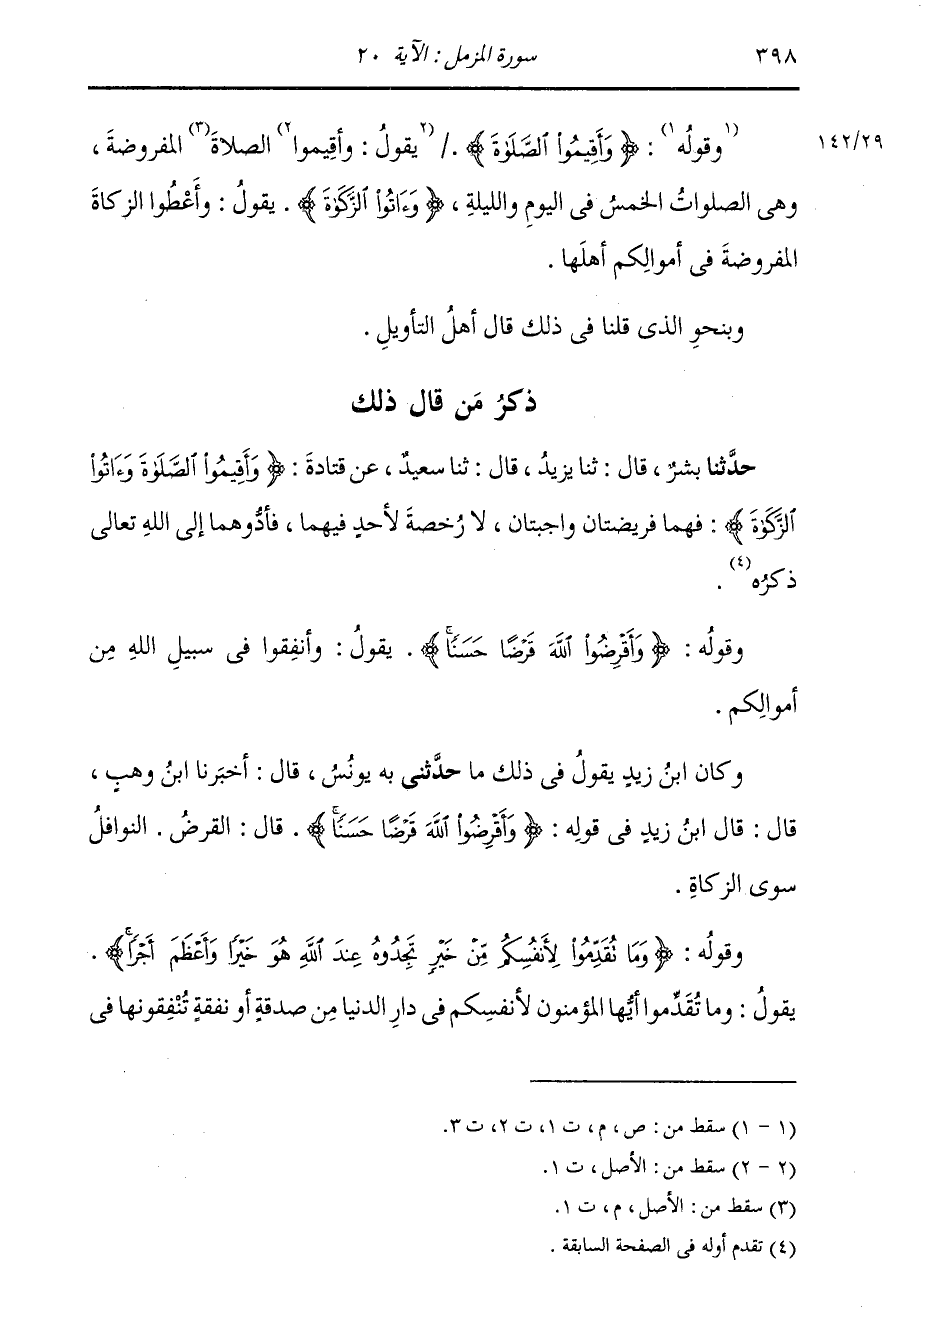 ٣٩٨ سورة المزمل : الآية ٢٠
١٤٢/٢٩ (١وقولُه١) : ﴿ وَأَقِيمُوا۟ ٱلصَّلَوٰةَ ﴾ ./ (٢يقولُ : وأقِيموا٢) الصلاةَ(٣) المفروضةَ ،
وهى الصلواتُ الخمسُ فى اليومِ والليلةِ ، ﴿ وَءَاتُوا۟ ٱلزَّكَوٰةَ ﴾ . يقولُ : وأَعْطُوا الزكاةَ
المفروضةَ فى أموالِكم أهلَها .
وبنحوِ الذى قلنا فى ذلك قال أهلُ التأويلِ .
ذكرُ مَن قال ذلك
حدَّثنا بشرٌ ، قال : ثنا يزيدُ ، قال : ثنا سعيدٌ ، عن قتادةَ : ﴿ وَأَقِيمُوا۟ ٱلصَّلَوٰةَ وَءَاتُوا۟
ٱلزَّكَوٰةَ ﴾ : فهما فريضتان واجبتان ، لا رُخصةَ لأحدٍ فيهما ، فأدُّوهما إلى اللهِ تعالى
ذكرُه(٤) .
وقولُه : ﴿ وَأَقْرِضُوا۟ ٱللَّهَ قَرْضًا حَسَنًا ۚ﴾ . يقولُ : وأنفِقوا فى سبيلِ اللهِ مِن
أموالِكم .
وكان ابنُ زيدٍ يقولُ فى ذلك ما حدَّثنى به يونُسُ ، قال : أخبَرنا ابنُ وهبٍ ،
قال : قال ابنُ زيدٍ فى قولِه : ﴿ وَأَقْرِضُوا۟ ٱللَّهَ قَرْضًا حَسَنًا ۚ﴾ . قال : القرضُ . النوافلُ
سوى الزكاةِ .
وقولُه : ﴿ وَمَا نُقَدِّمُوا۟ لِأَنفُسِكُم مِّنْ خَيْرٍ تَجِدُوهُ عِندَ ٱللَّهِ هُوَ خَيْرًا وَأَعْظَمَ أَجْرًا ۚ﴾ .
يقولُ : وما تُقَدِّموا أيُّها المؤمنون لأنفسِكم فى دارِ الدنيا مِن صدقةٍ أو نفقةٍ تُنْفِقونها فى
(١ - ١) سقط من : ص ، م ، ت ١، ت ٢، ت ٣.
(٢ - ٢) سقط من : الأصل ، ت ١.
(٣) سقط من : الأصل ، م ، ت ١.
(٤) تقدم أوله فى الصفحة السابقة .